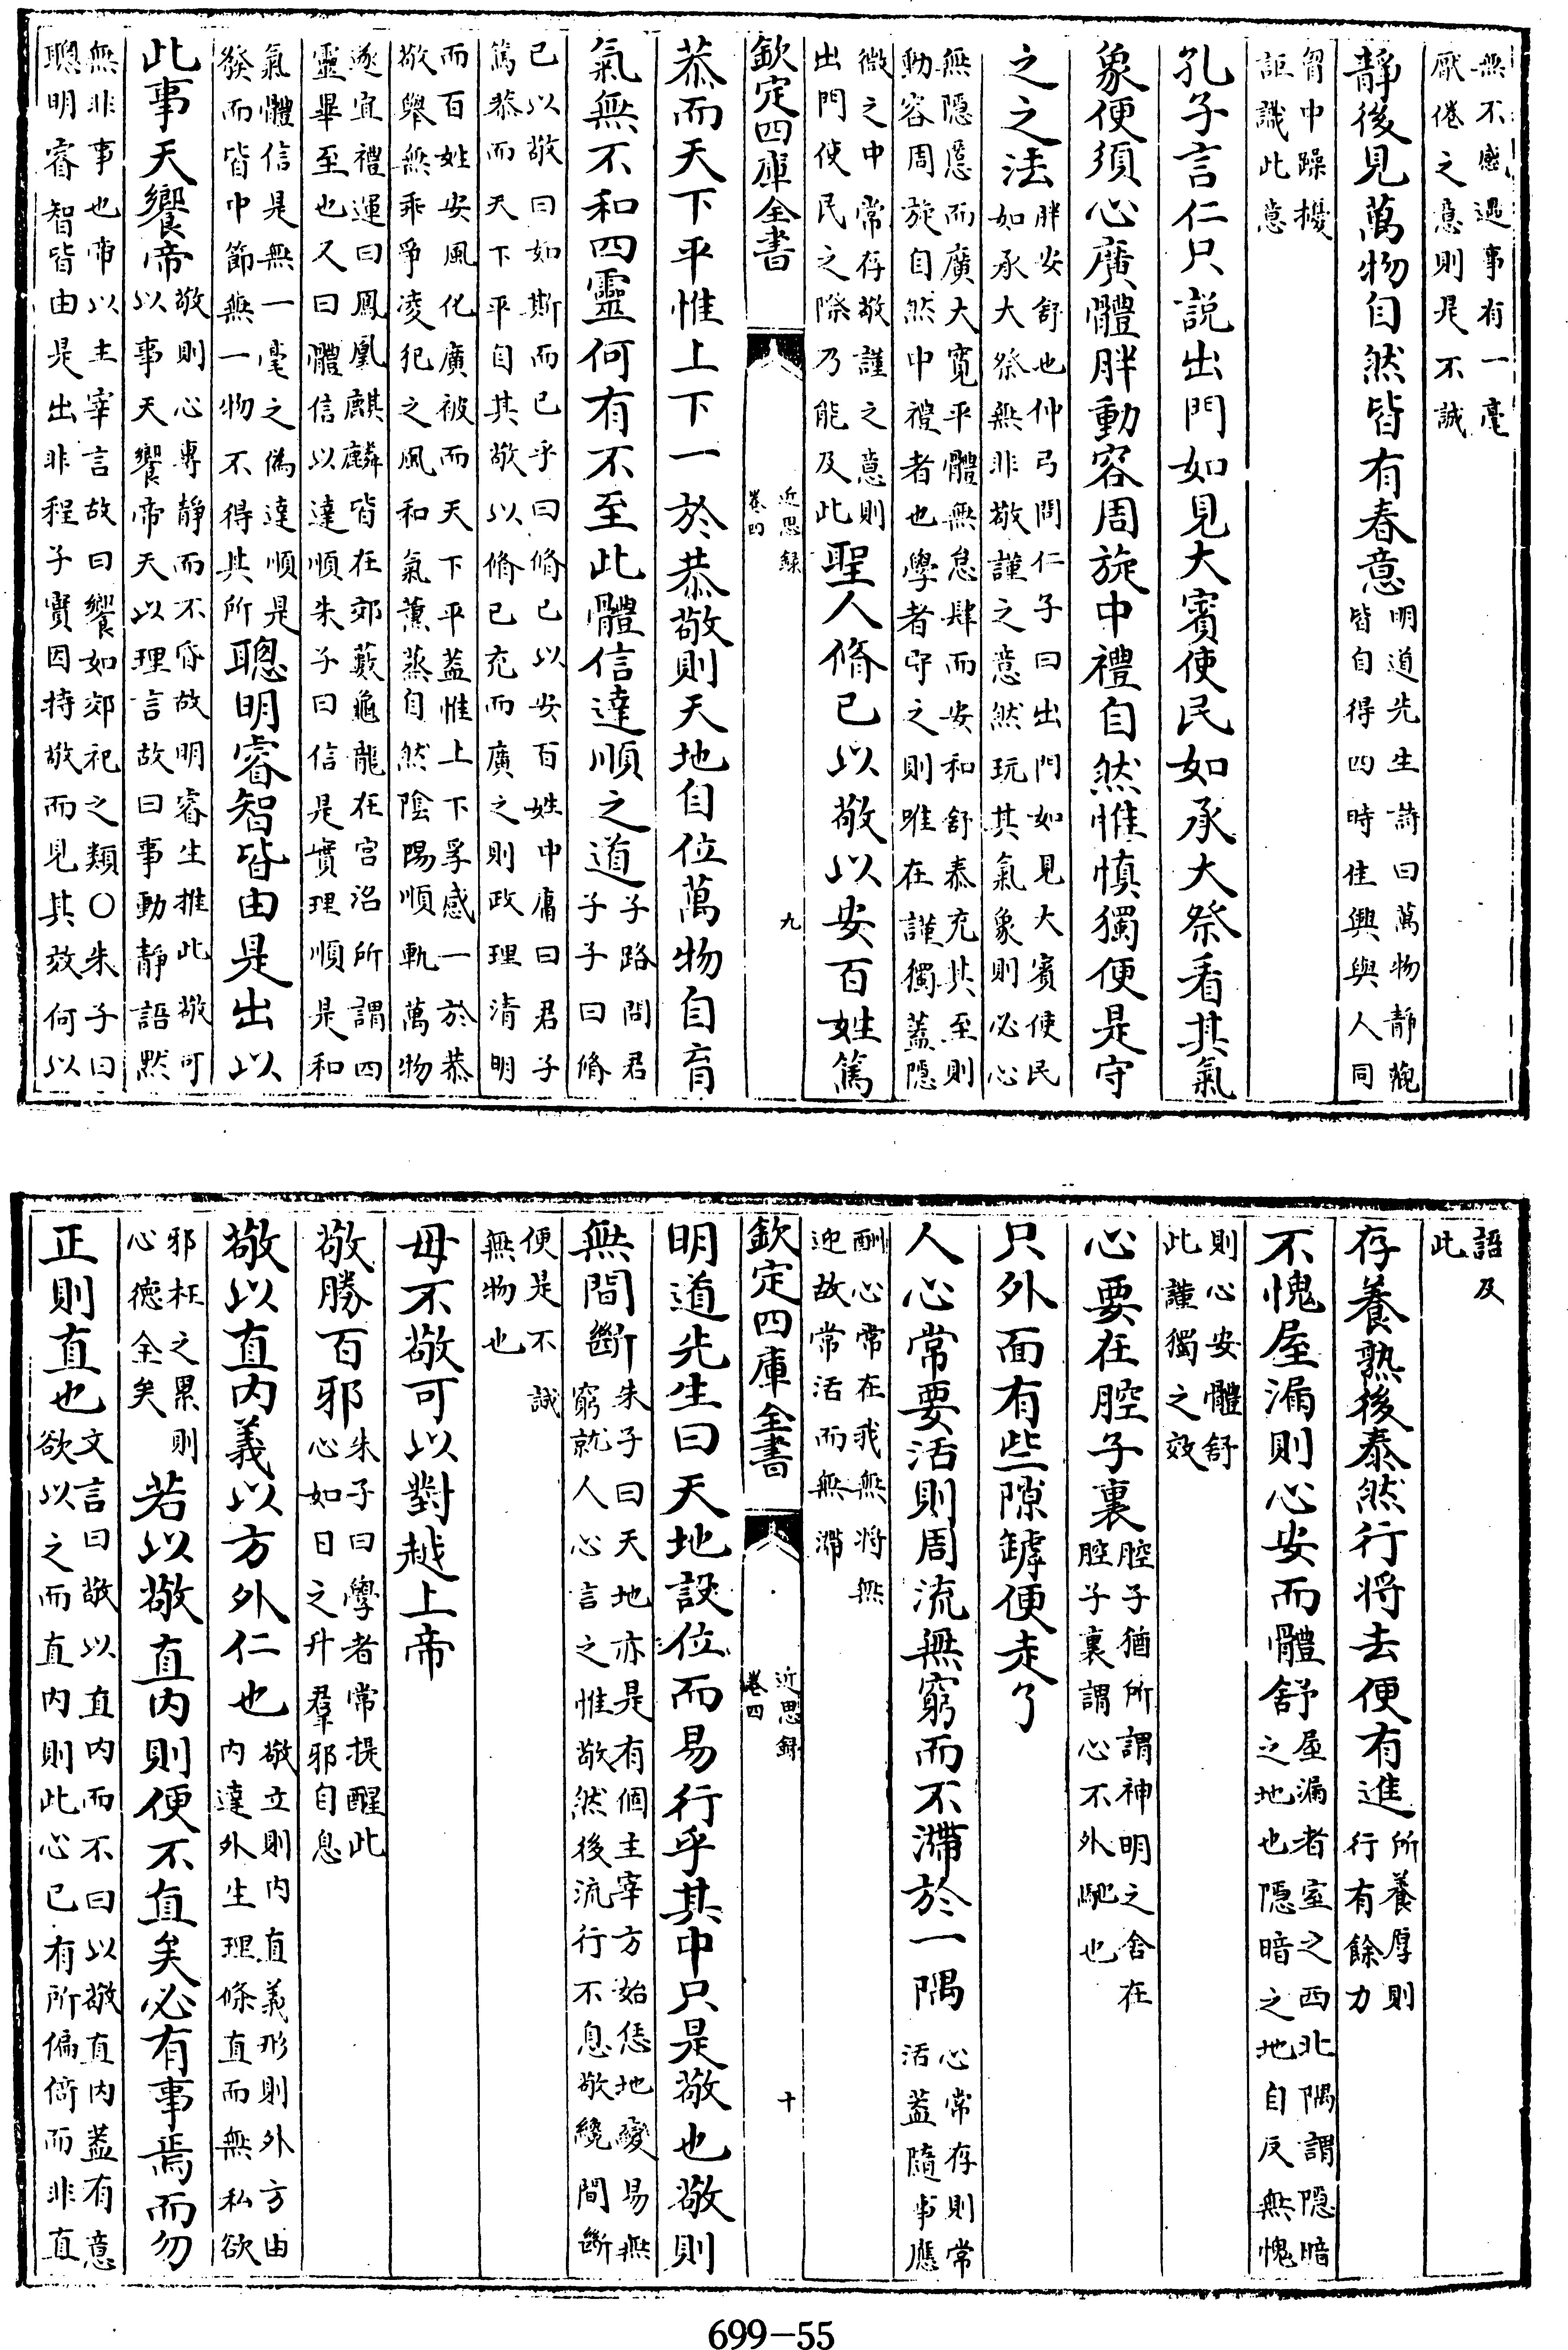 無不感遇事有一毫
厭倦之意則是不誠
静後見萬物自然皆有春意明道先生詩曰萬物静觀皆自得四時佳興與人同
胷中躁擾詎識此意
孔子言仁只説出門如見大賓使民如承大祭看其氣
象便須心廣體胖動容周旋中禮自然惟慎獨便是守
之之法胖安舒也仲弓問仁子曰出門如見大賓使民如承大祭無非敬謹之意然玩其氣象則必心
無隱慝而廣大寛平體無怠肆而安和舒泰充其至則動容周旋自然中禮者也學者守之則唯在謹獨蓋隠
微之中常存敬謹之意則出門使民之際乃能及此聖人脩己以敬以安百姓篤
欽定四庫全書
近思録
卷四
九
恭而天下平惟上下一於恭敬則天地自位萬物自育
氣無不和四靈何有不至此體信達順之道子路問君子子曰脩
已以敬曰如斯而已乎曰脩已以安百姓中庸曰君子篤恭而天下平自其敬以脩已充而廣之則政理清明
而百姓安風化廣被而天下平蓋惟上下孚感一於恭敬舉無乖爭凌犯之風和氣薰蒸自然陰陽順軌萬物
遂宜禮運曰鳳凰麒麟皆在郊藪龜龍在宫沼所謂四靈畢至也又曰體信以達順朱子曰信是實理順是和
氣體信是無一毫之偽達順是發而皆中節無一物不得其所聰明睿智皆由是出以
此事天饗帝敬則心專静而不昏故明睿生推此敬可以事天饗帝天以理言故曰事動静語黙
無非事也帝以主宰言故曰饗如郊祀之類○朱子曰聰明睿智皆由是出非程子實因持敬而見其效何以
語及此
存養熟後泰然行將去便有進所養厚則行有餘力
不愧屋漏則心安而體舒屋漏者室之西北隅謂隠暗之地也隠暗之地自反無愧
則心安體舒此謹獨之效
心要在腔子裏腔子猶所謂神明之舍在腔子裏謂心不外馳也
只外面有些隙罅便走了
人心常要活則周流無窮而不滯於一隅心常存則常活蓋隨事應
酬心常在我無將無迎故常活而無滯
欽定四庫全書
近思録
卷四
十
明道先生曰天地設位而易行乎其中只是敬也敬則
無間斷朱子曰天地亦是有個主宰方始恁地變易無窮就人心言之惟敬然後流行不息敬纔間斷
便是不誠無物也
毋不敬可以對越上帝
敬勝百邪朱子曰學者常提醒此心如日之升羣邪自息
敬以直内義以方外仁也敬立則内直義形則外方由内達外生理條直而無私欲
邪枉之累則心德全矣若以敬直内則便不直矣必有事焉而勿
正則直也文言曰敬以直内而不曰以敬直内蓋有意欲以之而直内則此心已有所偏倚而非直
699-55